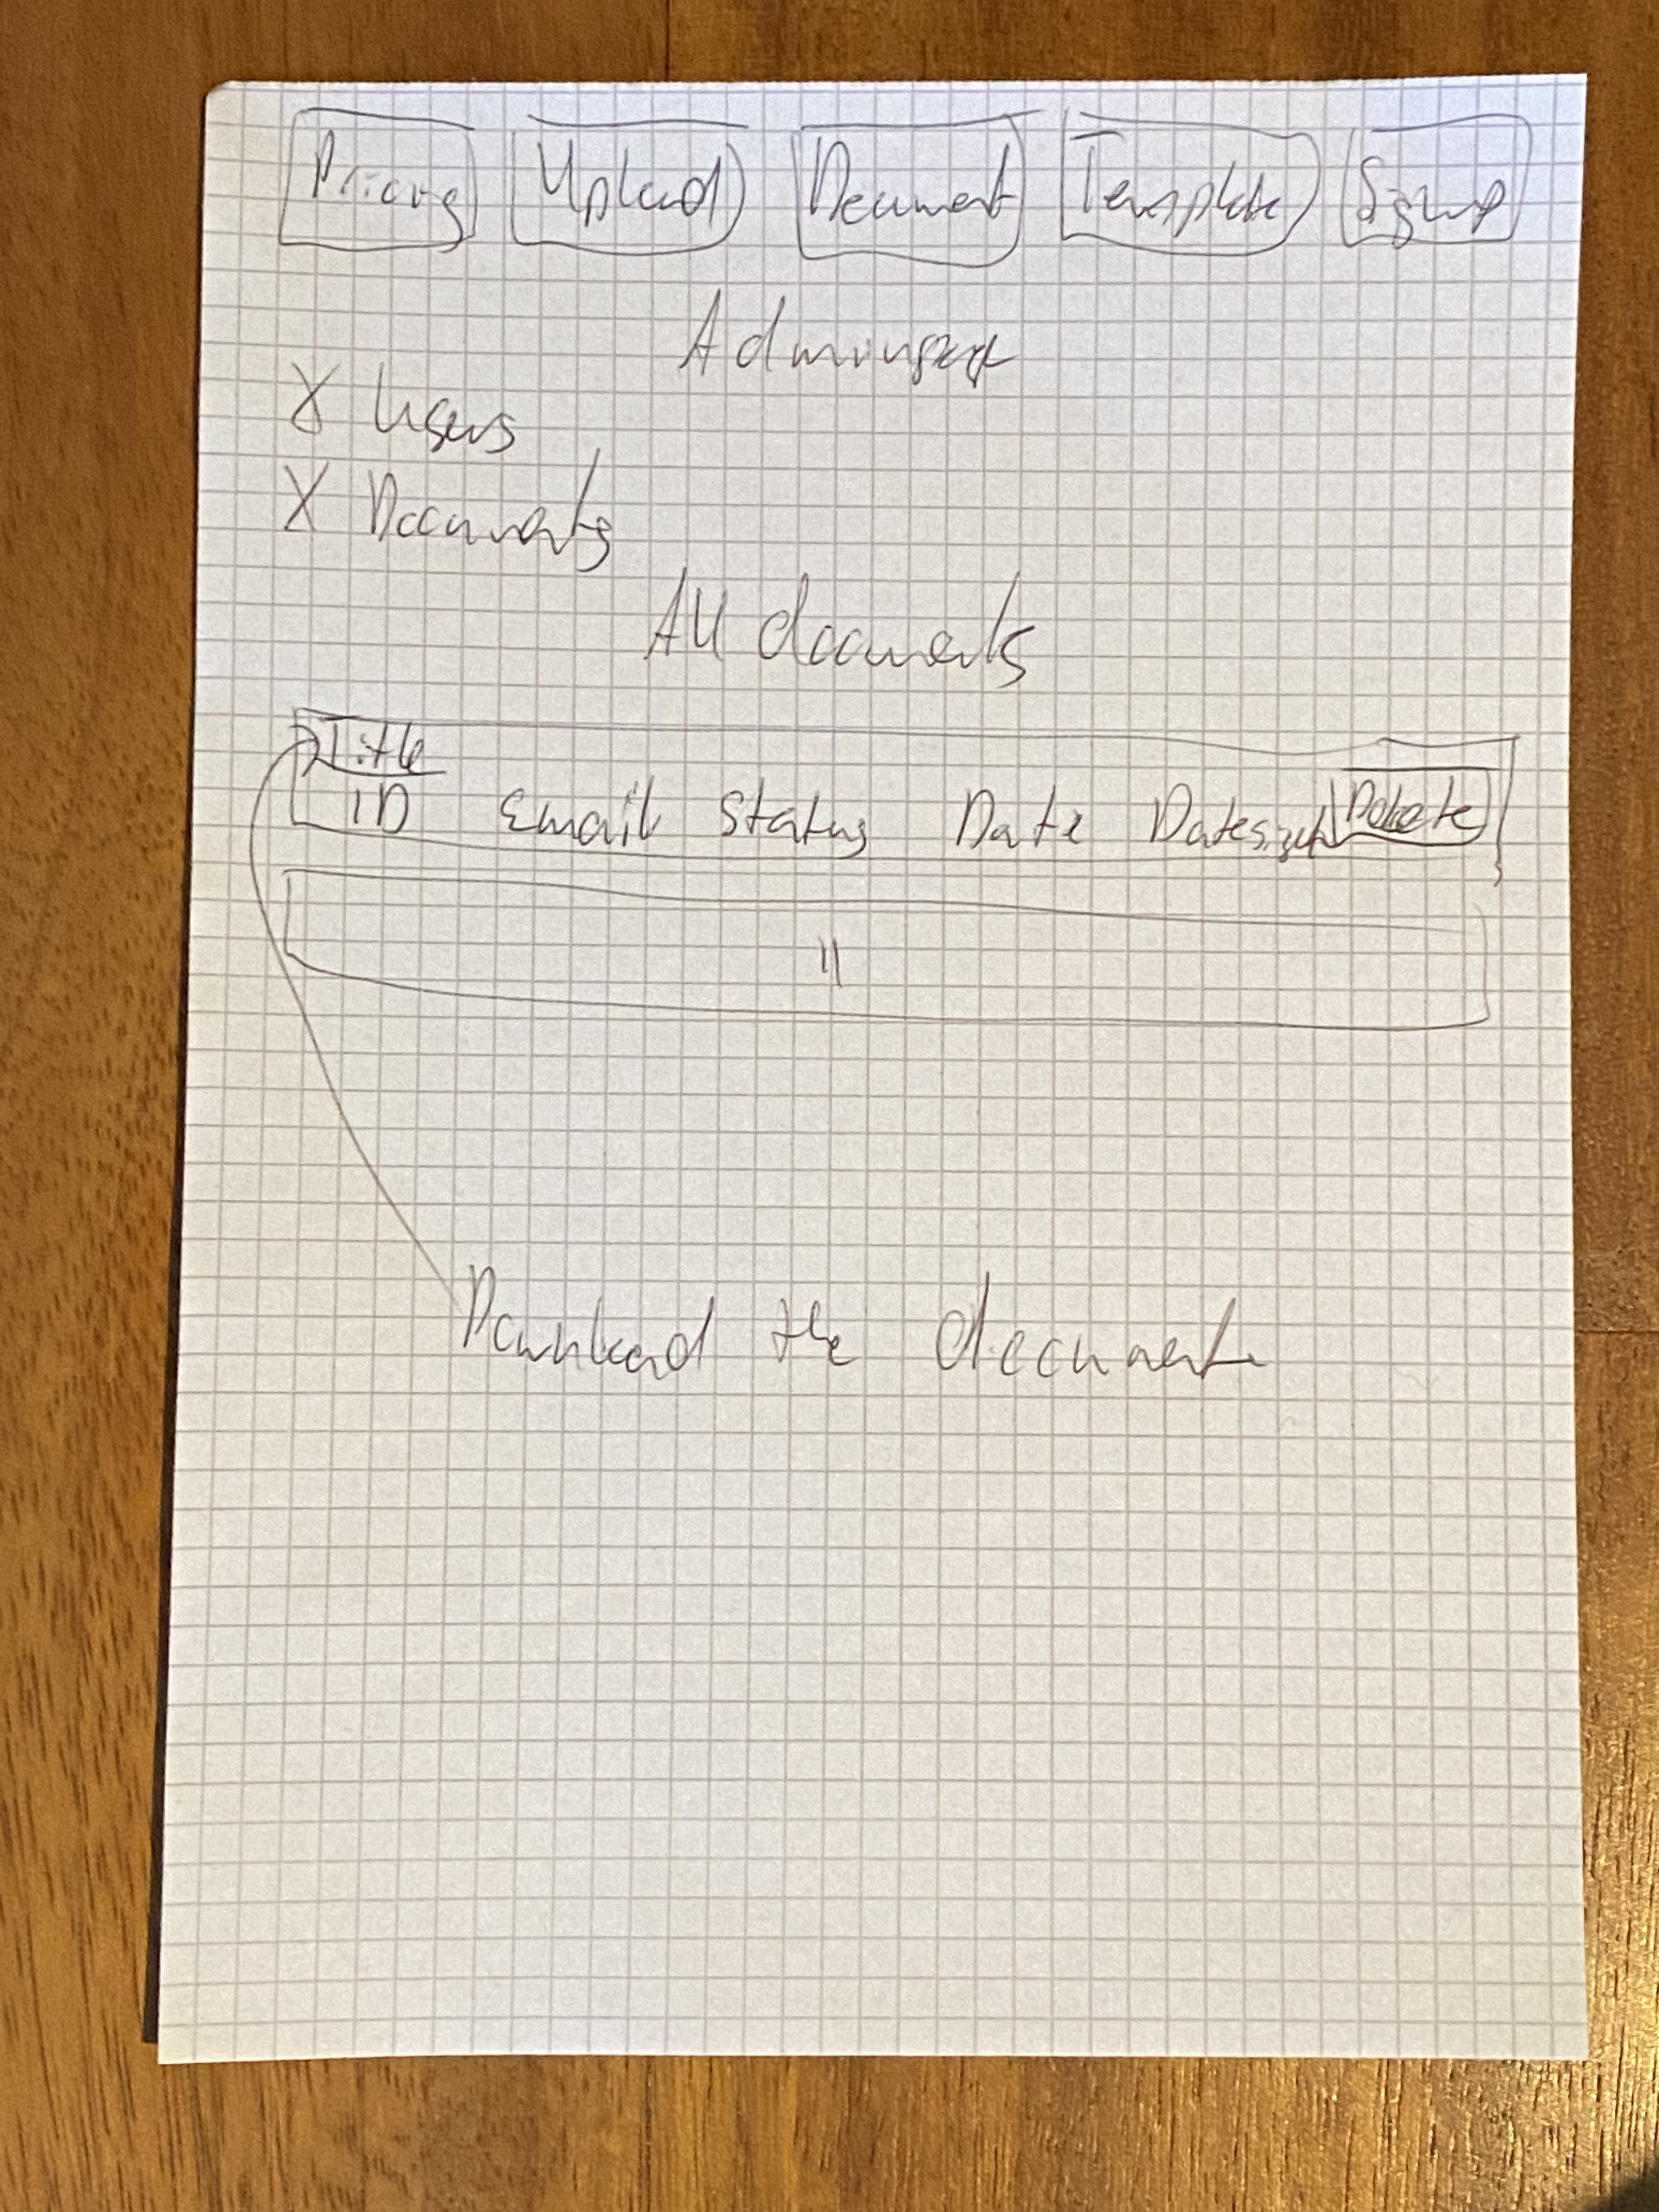 Pricing Upload Document Template Signup
Adminpage
X Users
X Documents
All documents
Title
ID Email Status Date Datesigned Delete
"
Download the document